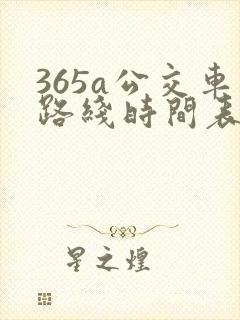 365a公交車
路綫時間表
星之煌